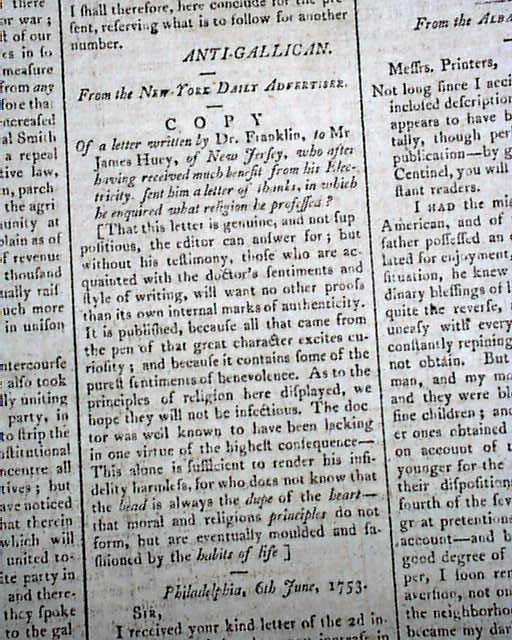 there
or war ;
st of our
es in so
measure
from any
fore tha
encreased
al Smith
a repeal
tive law,
n, parch
the agri
unity at
plain as of
f revenue
thousand
ually rais
uch more
in unison
intercourse
also took
lly uniting
party, in
to strip the
nstitutional
ncentre all
tives ; but
ave noticed
hat therein
which will
united to-
ite party in
and there-
they spoke
to the gal
I shall therefore, here conclude for the pre-
sent, reserving what is to follow for another
number.
ANTI-GALLICAN.
From the NEW-YORK DAILY ADVERTISER.
COPY
Of a letter written by Dr. Franklin, to Mr
James Huey, of New Jersey, who after
having received much benefit from his Elec-
tricity, sent him a letter of thanks, in which
he enquired what religion he professed ?
[That this letter is genuine, and not sup
positious, the editor can answer for ; but
without his testimony, those who are ac-
quainted with the doctor's sentiments and
style of writing, will want no other proofs
than its own internal marks of authenticity.
It is published, because all that came from
the pen of that great character excites cu-
riosity ; and because it contains some of the
purest sentiments of benevolence. As to the
principles of religion here displayed, we
hope they will not be infectious. The doc
tor was well known to have been lacking
in one virtue of the highest consequence—
This alone is sufficient to render his infi-
delity harmless, for who does not know that
the head is always the dupe of the heart—
that moral and religious principles do not
form, but are eventually moulded and fa-
shioned by the habits of life ]
Philadelphia, 6th June, 1753.
SIR,
I received your kind letter of the 2d in-
From the ALBA
Messrs. Printers,
Not long since I acci
inclosed description
appears to have b
tally, though per
publication—by g
Centinel, you will
stant readers.
I HAD the mis
American, and of
father possessed an
lated for enjoyment,
situation, he knew
dinary blessings of l
quite the reverse,
uneasy with every
constantly repining
not obtain. But
man, and my mo
and they were ble
fine children ; and
er ones obtained
on account of t
younger for the
their disposition
fourth of the fev
great pretention
account—and b
good degree of
per, I soon ren
aversion, not on
the neighborhoo
became my dar